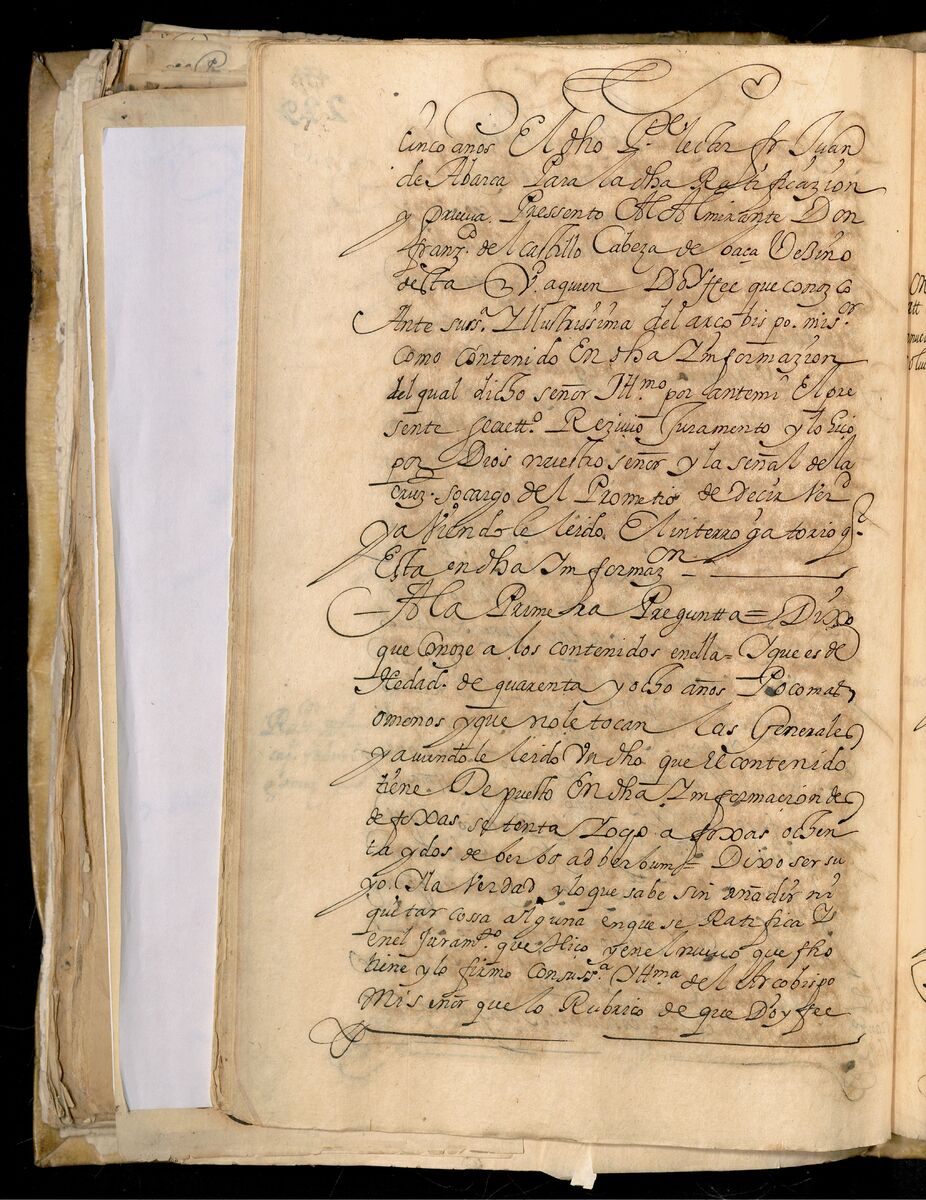 Cinco años El dho Pe. lector fr Juan
de Abarca Para la dha Ratificazion
y prueua. Pressento Al Almirante Don
franzco. del castillo Cabeza de baca Vezino
desta Vª. aquien Doyffee que conozco
Ante sursª. Yllustrissima del arcobispo. misor.
como contenido En dha Ymformazion
del qual dicho señor Illmo. por antemi El pre
sente secrettº. Reziuio Juramento y lo hiço
por Dios nuestro señor y la señal de la
Cruz. so cargo del Prometio de decir Verd
ya Viendole leido. El interrogatorio qe.
Esta en dha Ymformazon
A la Primera Preguntta = Dixo
que Conoze a los contenidos enella = Y que es de
Hedad. de quarenta y ocho años Pocomas
omenos y que no le tocan las Generales
y auiendole leido Vn dho que El contenido
tiene. Depuesto En dha Ymformacion de
de foxas setenta Yocho. a foxas ochen
ta y dos de berbo ad berbum = Dixo ser su
yo. Yla Verdad y lo que sabe sin añadir ni
quitar cossa alguna en que se Ratifica Y
enel Juramto. que Hiço y enel nueuo que fho
tiene y lo firmo Consussª. Yllma. del Arcobispo
Mi señor que lo Rubrico de que Doyffee